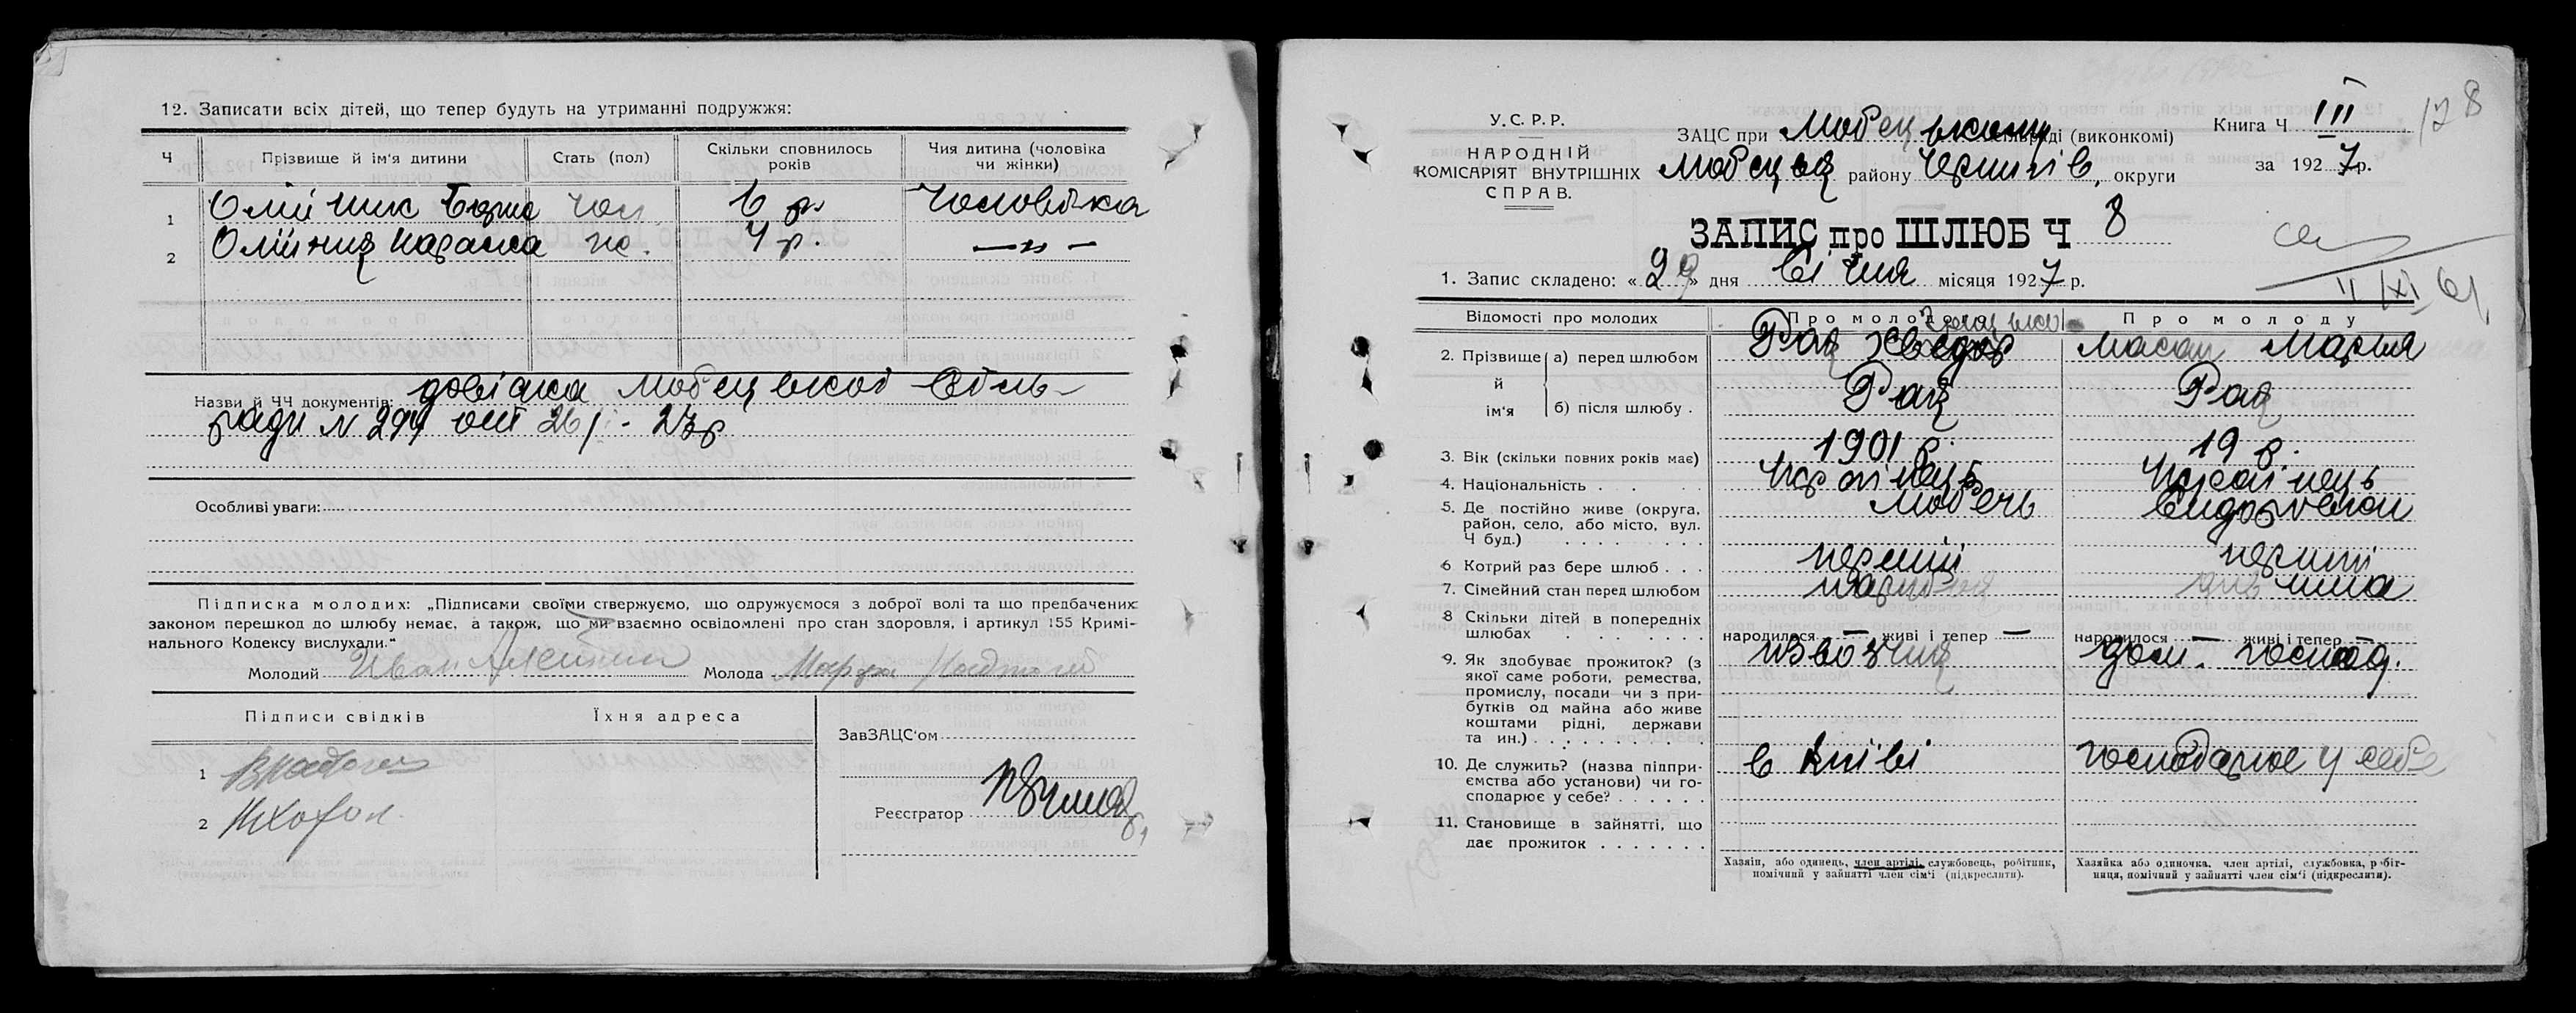 12. Записати всіх дітей, що тепер будуть на утриманні подружжя:
Ч Прізвище й ім'я дитини Стать (пол) Скільки сповнилось років Чия дитина (чоловіка чи жінки)
1 Олійник чол 6 р. Чоловіка
2 Олійник Параска ж. 4 р. — „ —
Назви й ЧЧ документів: довідка Любецької Сіль-
ради N 294 от 26/I - 27 р
Особливі уваги:
Підписка молодих: „Підписами своїми стверджуємо, що одружуємося з доброї волі та що предбачених
законом перешкод до шлюбу немає, а також, що ми взаємно освідомлені про стан здоровля, і артикул 155 Кримі-
нального Кодексу вислухали."
Молодий Иван Молода Марфа
Підписи свідків Їхня адреса
1
2
ЗавЗАЦС'ом
Реєстратор
У.С.Р.Р.
НАРОДНІЙ
КОМІСАРІЯТ ВНУТРІШНІХ
СПРАВ.
ЗАЦС при Любецькому сільраді (виконкомі)
Любецьк району Чернигів, округи
Книга Ч III
за 1927 р.
128
ЗАПИС про ШЛЮБ Ч 8
1. Запис складено: «29» дня Січня місяця 1927 р.
II/XI 61
Відомості про молодих Про молодого Про молоду
2. Прізвище й ім'я а) перед шлюбом Рак Хведор Масан Марья
б) після шлюбу . Рак Рак
3. Вік (скільки повних років має) 1901 р. 19 р.
4. Національність . . . Українець Українець
5. Де постійно живе (округа, район, село, або місто, вул. Ч буд.) Любечь
6 Котрий раз бере шлюб . . . перший перший
7. Сімейний стан перед шлюбом парубок дівчина
8 Скільки дітей в попередніх шлюбах народилося — живі і тепер — народилося — живі і тепер —
9. Як здобуває прожиток? (з якої саме роботи, ремества, промислу, посади чи з прибутків од майна або живе коштами рідні, держави та ин.) извозчик дом. господ.
10. Де служить? (назва підприємства або установи) чи господарює у себе? в Київі господарює у себе
11. Становище в зайнятті, що дає прожиток
Хазяїн, або одинець, член артілі, службовець, робітник, помічний у зайнятті член сім'ї (підкреслити).
Хазяйка або одиночка, член артілі, службовка, робітниця, помічний у зайнятті член сім'ї (підкреслити).